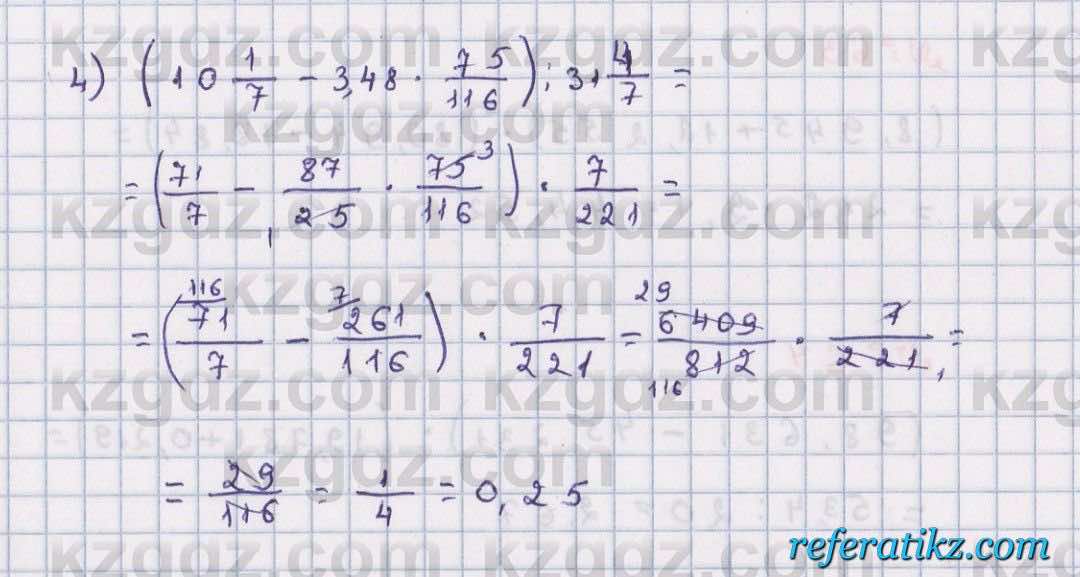 4) (10 1/7 − 3,48 · 75/116) : 31 4/7 =
= (71/7 − 87/25 · 75/116) · 7/221 =
= (71/7 − 261/116) · 7/221 = 6409/812 · 7/221 =
= 29/116 = 1/4 = 0,25
kzgdz.com
referatikz.com